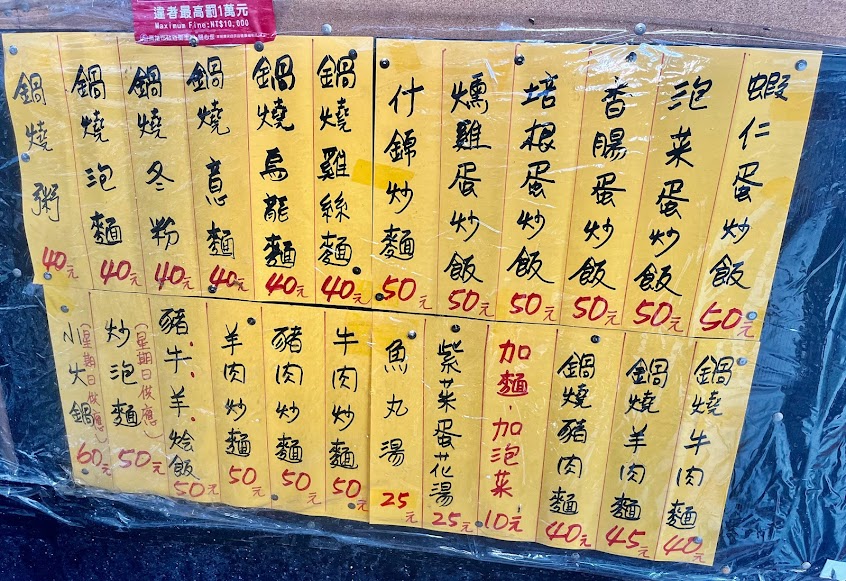 違者最高罰1萬元
Maximum Fine:NT$10,000
蝦仁蛋炒飯 50元
泡菜蛋炒飯 50元
香腸蛋炒飯 50元
培根蛋炒飯 50元
燻雞蛋炒飯 50元
什錦炒麵 50元
鍋燒雞絲麵 40元
鍋燒烏龍麵 40元
鍋燒意麵 40元
鍋燒冬粉 40元
鍋燒泡麵 40元
鍋燒粥 40元
鍋燒牛肉麵 40元
鍋燒羊肉麵 45元
鍋燒豬肉麵 40元
加麵.加泡菜 10元
紫菜蛋花湯 25元
魚丸湯 25元
牛肉炒麵 50元
豬肉炒麵 50元
羊肉炒麵 50元
豬.牛.羊.燴飯 50元
炒泡麵 (星期日供應) 50元
小火鍋 (星期日供應) 60元